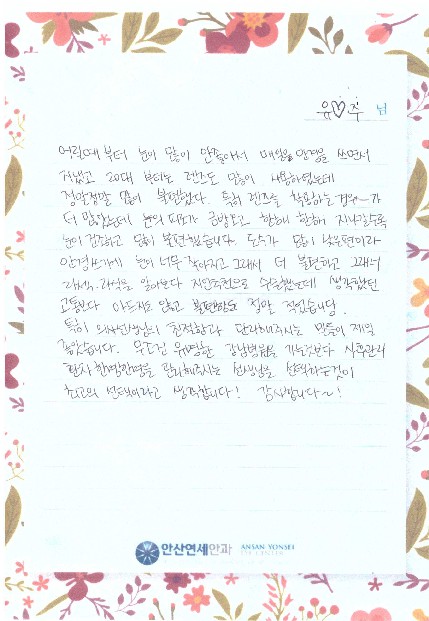 윤♡주 님
어릴때부터 눈이 많이 안좋아서 매일을 안경을 쓰면서
지냈고 20대 부터는 렌즈도 많이 사용하였는데
정말정말 많이 불편했다. 특히 렌즈를 착용하는 경우가
더 많았는데 눈의 피로가 금방오고 한해 한해 지나갈수록
눈이 건조하고 많이 불편했습니다. 도수가 많이 낮은편이라
안경쓰게 눈이 너무 작아지고 그래서 더 불편하고 그래서
라섹, 라식을 알아보다 지인추천으로 수술했는데 생각했던
고통보다 아프지는 않고 불편함도 정말 적었습니당.
특히 의사선생님의 친절하고 관리해주시는 말들이 제일
좋았습니다. 무조건 유명한 강남병원을 가는것보다 사후관리
환자 한명한명을 관리해주시는 선생님을 선택하는것이
최고의 선택이라고 생각합니다! 감사합니다~!
안산연세안과 ANSAN YONSEI
EYE CENTER